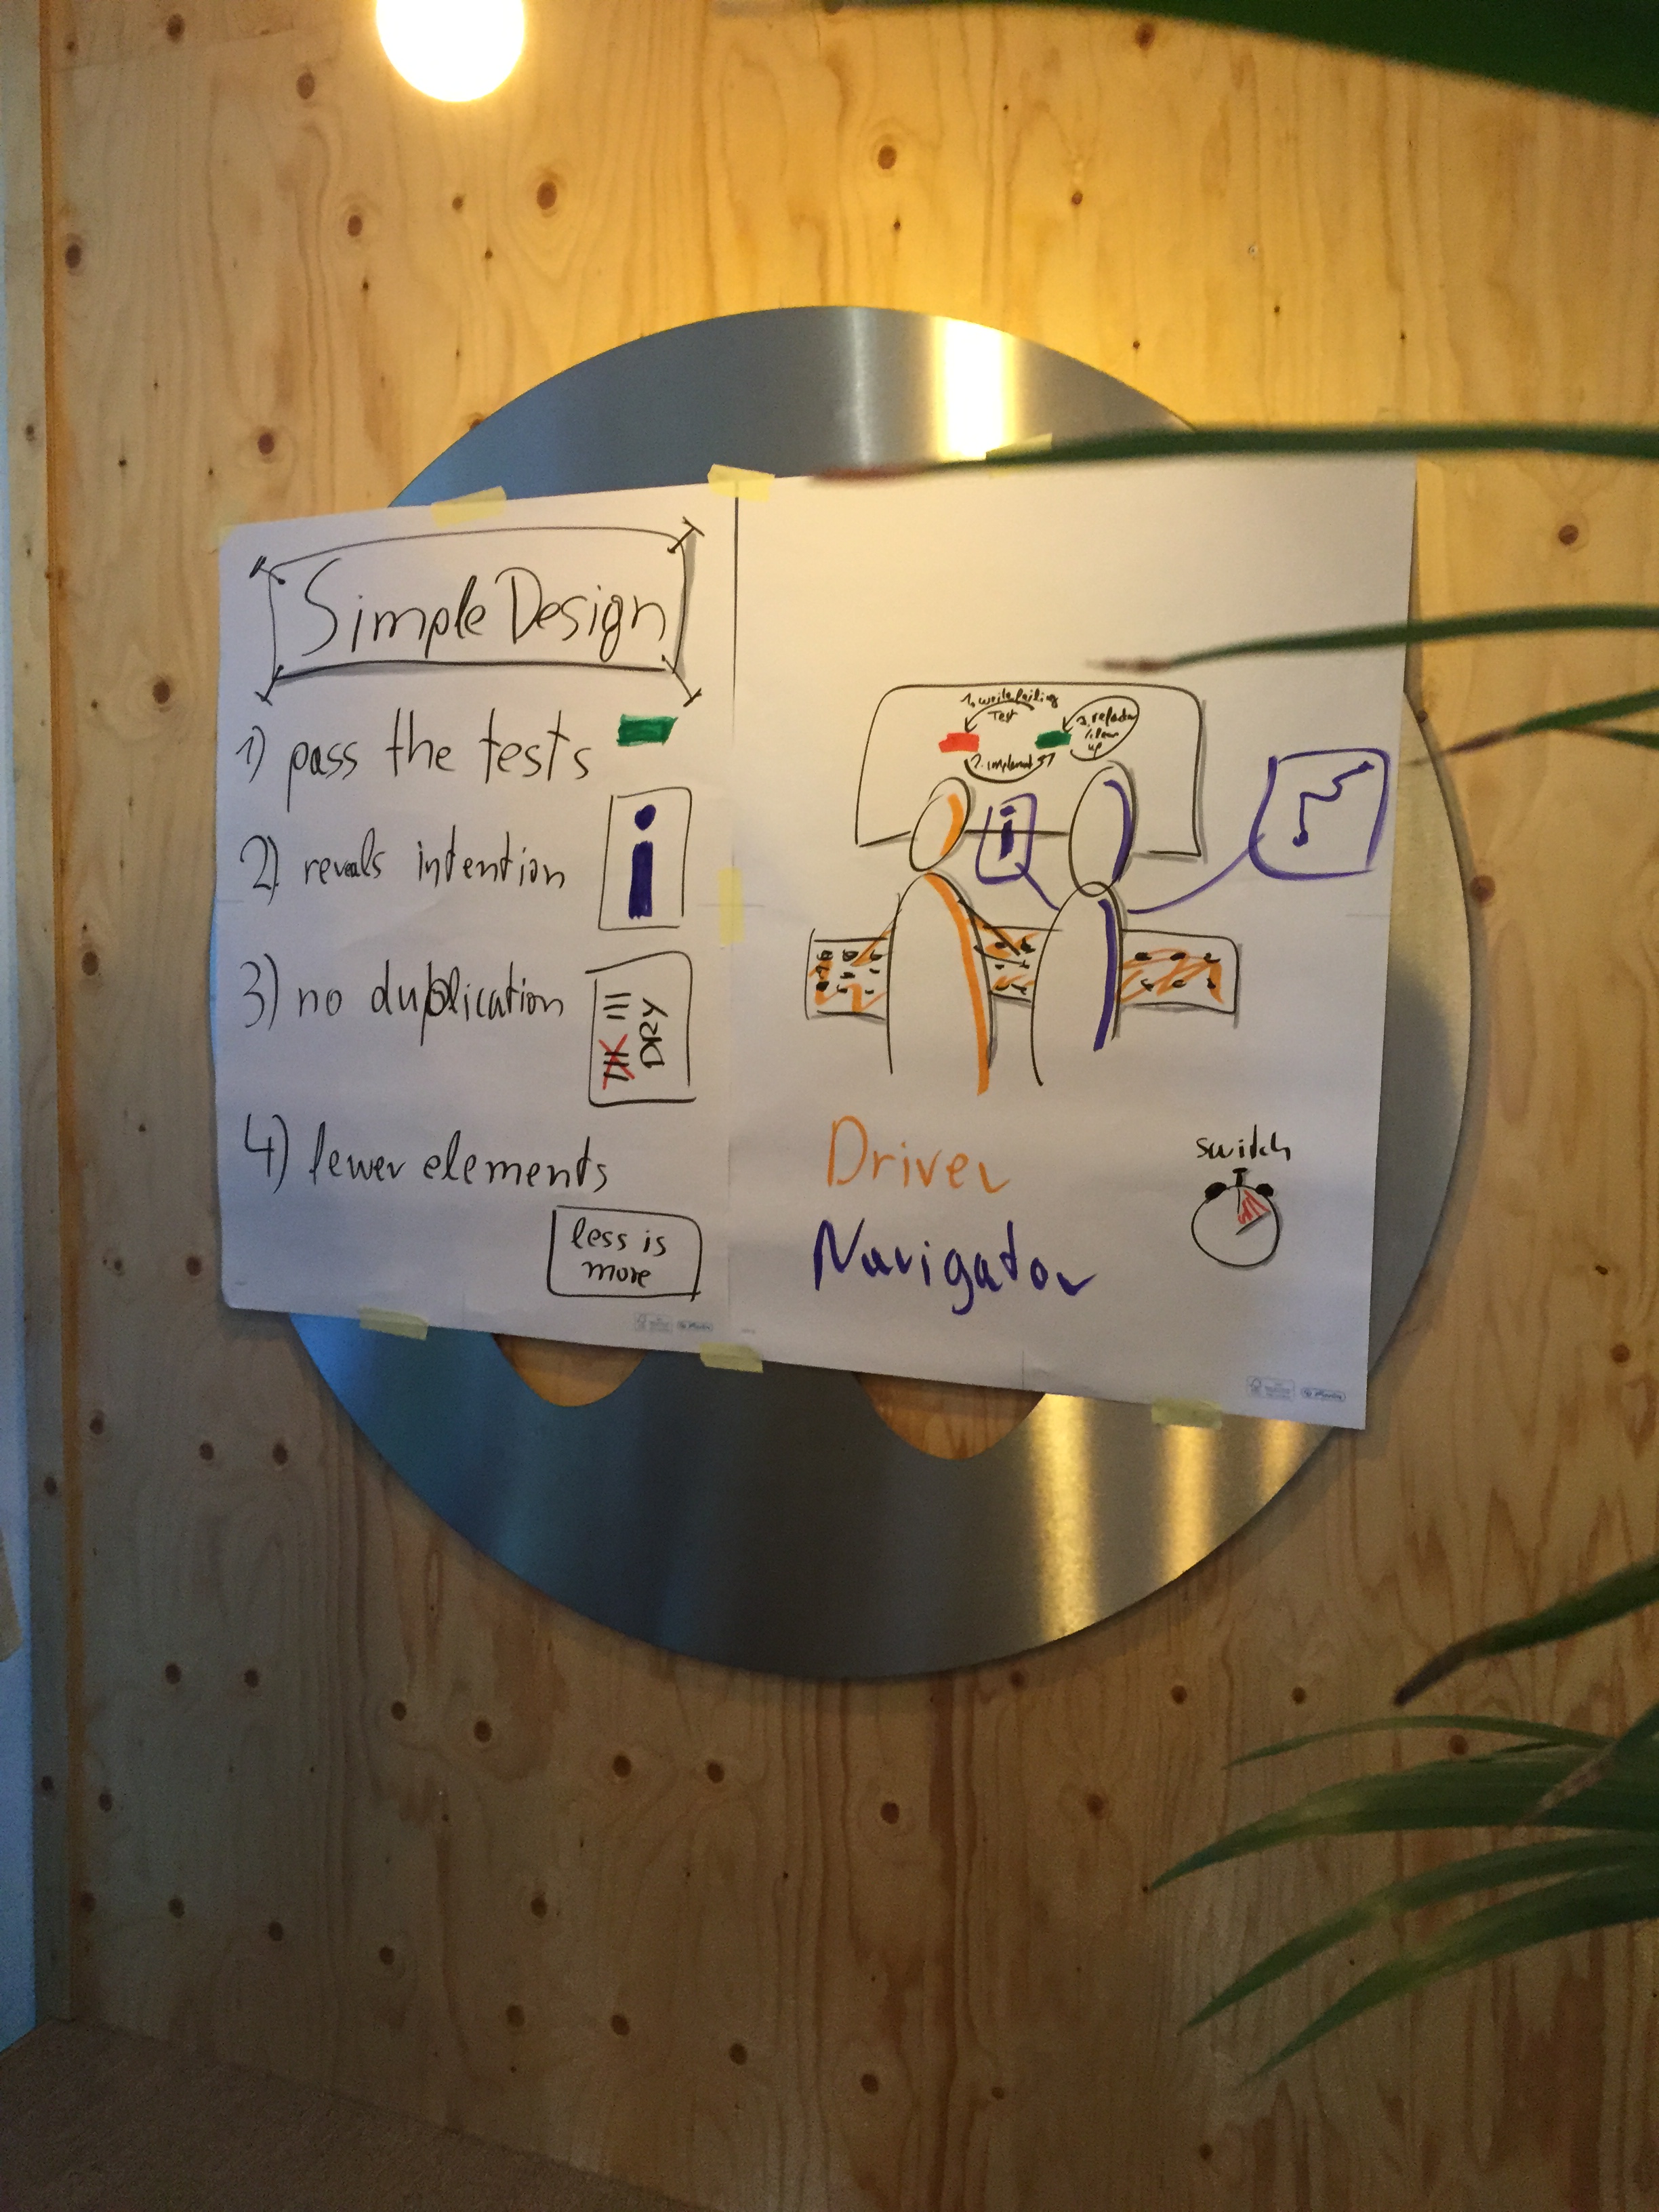 Simple Design
1) pass the tests
2) reveals intention
i
3) no duplication
DRY
4) fewer elements
less is
more
1. write failing
Test
i
Driver
Navigator
switch